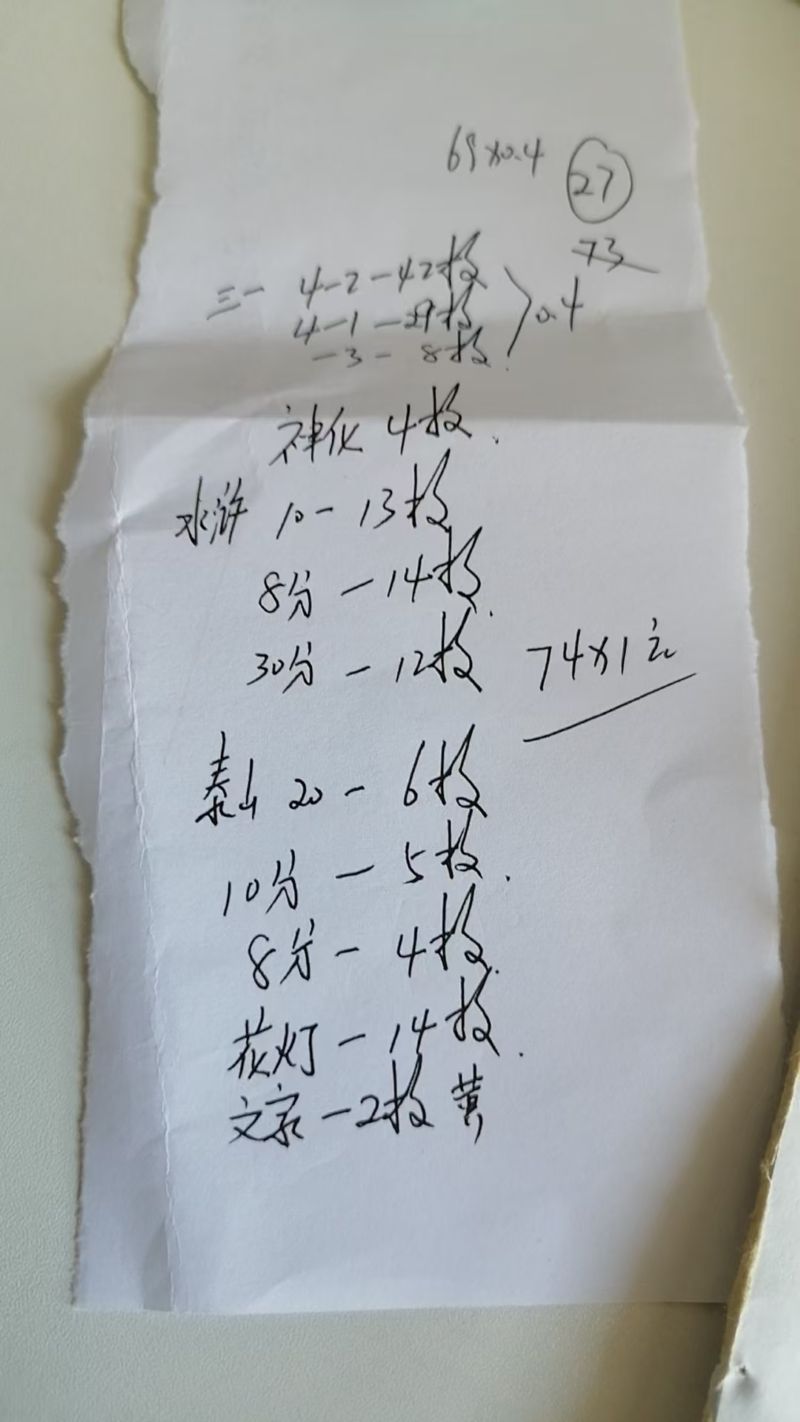 69×0.4 27
73
三一 4-2-42枚
4-1-29枚 0.4
-3- 8枚.
神化 4枚.
水浒 10-13枚
8分-14枚.
30分-12枚 74×1元
泰山 20-6枚
10分-5枚.
8分-4枚.
花灯-14枚.
文家-2枚 黄